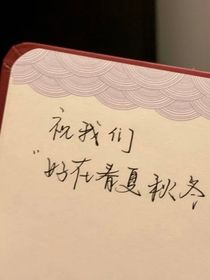 祝我们
"好在春夏秋冬